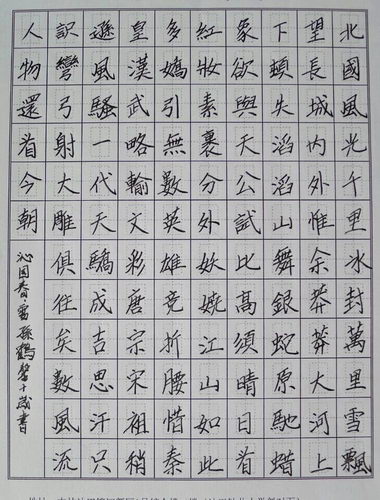 北國風光千里冰封萬里雪飄
望長城內外惟余莽莽大河上
下頓失滔滔山舞銀蛇原馳蠟
象欲與天公試比高須晴日看
紅妝素裹分外妖嬈江山如此
多嬌引無數英雄竞折腰惜秦
皇漢武略輸文彩唐宗宋祖稍
遜風騷一代天驕成吉思汗只
訳彎弓射大雕俱往矣數風流
人物還看今朝
沁園春·雪 孫鶴馨十歲書